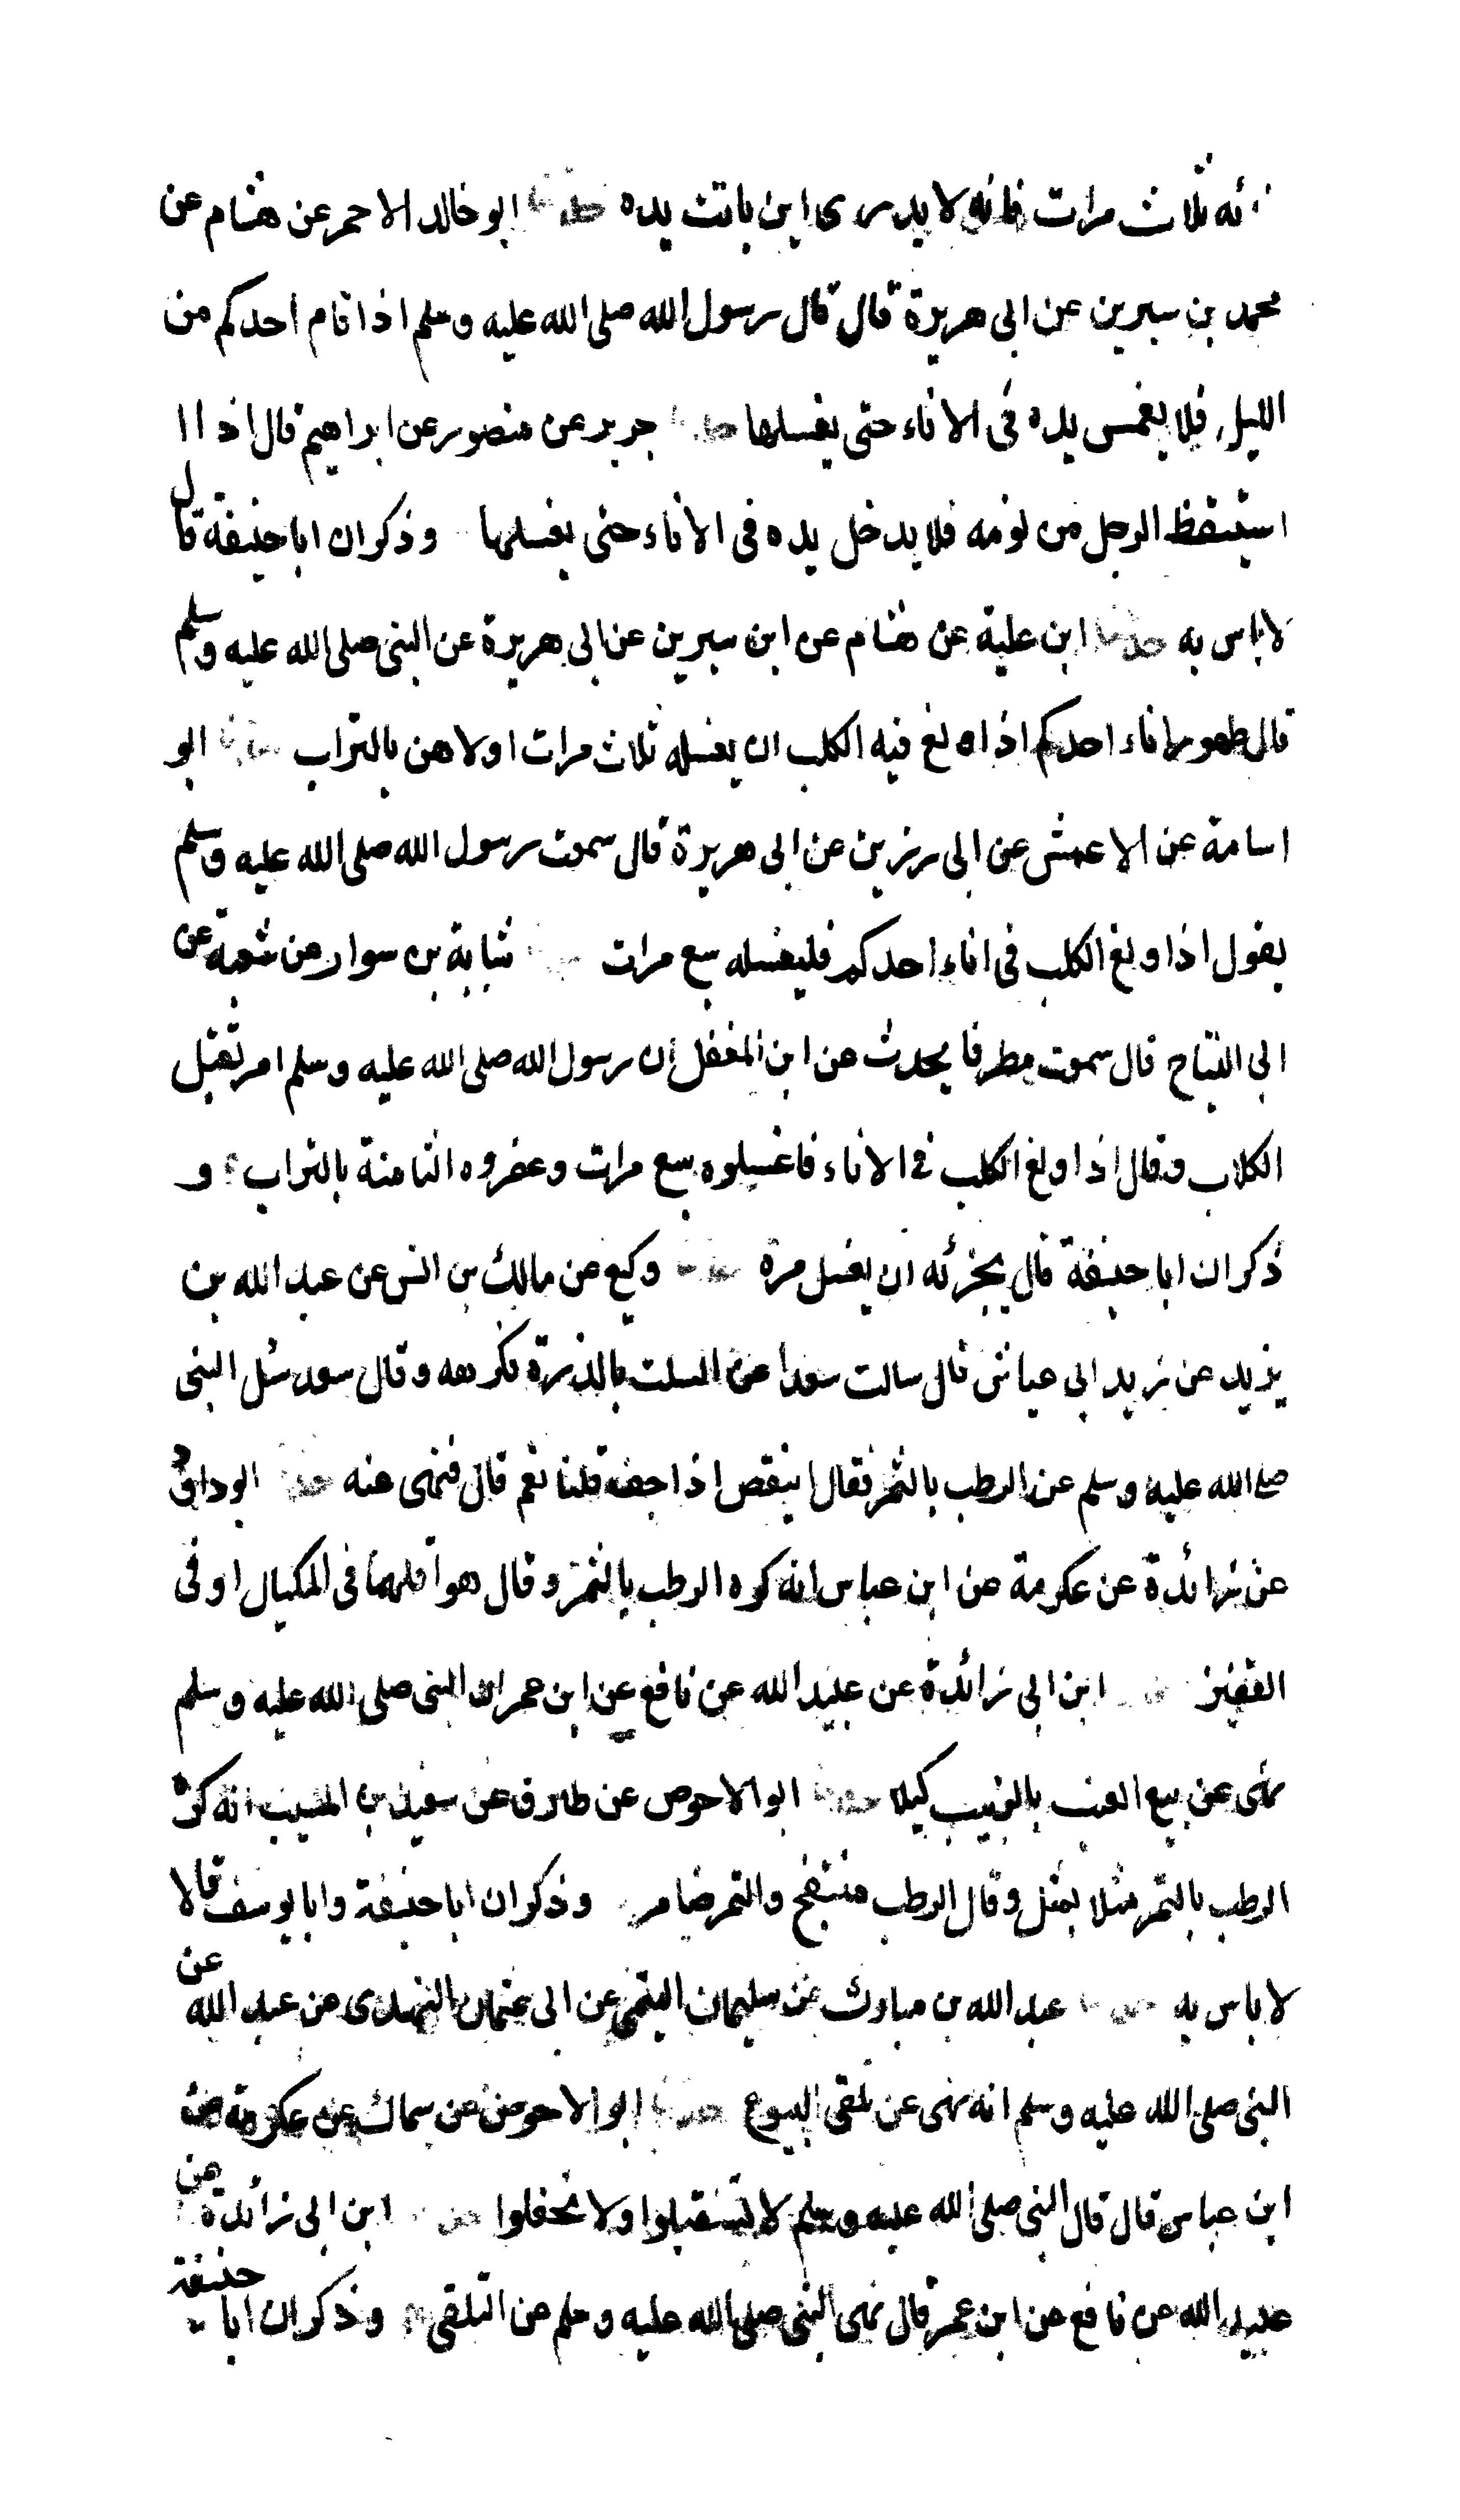 ئه ثلاث مرات فانه لا يدرى اين باتت يده حدثنا ابو خالد الاحمر عن هشام عن
محمد بن سيرين عن ابى هريرة قال قال رسول الله صلى الله عليه وسلم اذا قام احدكم من
الليل فلا يغمس يده فى الاناء حتى يغسلها حدثنا جرير عن منصور عن ابراهيم قال اذا ا
استيقظ الرجل من نومه فلا يدخل يده فى الاناء حتى يغسلها وذكر ان ابا حنيفة قال
لا باس به حدثنا ابن علية عن هشام عن ابن سيرين عن ابى هريرة عن النبى صلى الله عليه وسلم
قال طهور اناء احدكم اذا ولغ فيه الكلب ان يغسله ثلاث مرات اولاهن بالتراب حدثنا ابو
اسامة عن الاعمش عن ابى رزين عن ابى هريرة قال سمعت رسول الله صلى الله عليه وسلم
يقول اذا ولغ الكلب فى اناء احدكم فليغسله سبع مرات شبابة بن سوار عن شعبة عن
ابى التياح قال سمعت مطرفا يحدث عن ابن المغفل ان رسول الله صلى الله عليه وسلم امر بقتل
الكلاب وقال اذا ولغ الكلب فى الاناء فاغسلوه سبع مرات وعفروه الثامنة بالتراب و
ذكر ان ابا حنيفة قال يجزئه ان يغسل مرة حدثنا وكيع عن مالك بن انس عن عبد الله بن
يزيد عن زيد ابى عياش قال سالت سعدا عن السلت بالذرة فكرهه وقال سعد سئل النبى
صلى الله عليه وسلم عن الرطب بالتمر فقال اينقص اذا جف قلنا نعم قال فنهى عنه حدثنا ابو داؤد
عن زائدة عن عكرمة عن ابن عباس انه كره الرطب بالتمر وقال هو اقلهما فى المكيال او فى
القفيز ابن ابى زائدة عن عبيد الله عن نافع عن ابن عمر ان النبى صلى الله عليه وسلم
نهى عن بيع العنب بالزبيب كيلا حدثنا ابو الاحوص عن طارق عن سعيد بن المسيب انه كره
الرطب بالتمر مثلا بمثل وقال الرطب منتفخ والتمر ضامر وذكر ان ابا حنيفة وابا يوسف قالا
لا باس به حدثنا عبد الله بن مبارك عن سليمان التيمى عن ابى عثمان النهدى عن عبد الله عن
النبى صلى الله عليه وسلم انه نهى عن تلقى البيوع حدثنا ابو الاحوص عن سماك عن عكرمة عن
ابن عباس قال قال النبى صلى الله عليه وسلم لا تستقبلوا ولا تحفلوا حدثنا ابن ابى زائدة عن
عبيد الله عن نافع عن ابن عمر قال نهى النبى صلى الله عليه وسلم عن التلقى وذكر ان ابا حنيفة